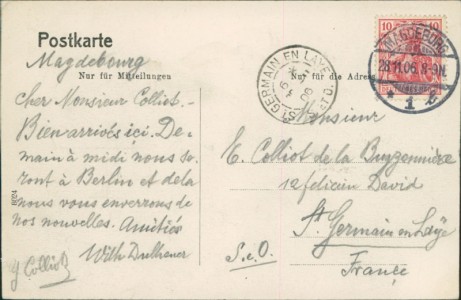 Postkarte
Magdebourg
Nur für Mitteilungen
Nur für die Adresse
10 10
MAGDEBURG
28.11.06. 8-9N.
* 1
ST GERMAIN EN LAYE
06
ET O.
cher Monsieur Colliot.-
Bien arrivés içi. De-
main à midi nous se-
ront à Berlin et de là
nous vous enverrons de
nos nouvelles. Amitiés
With
Colliot
Monsieur
E. Colliot de la
12 félicien David
St. Germain en Laye
S.e.O.
France